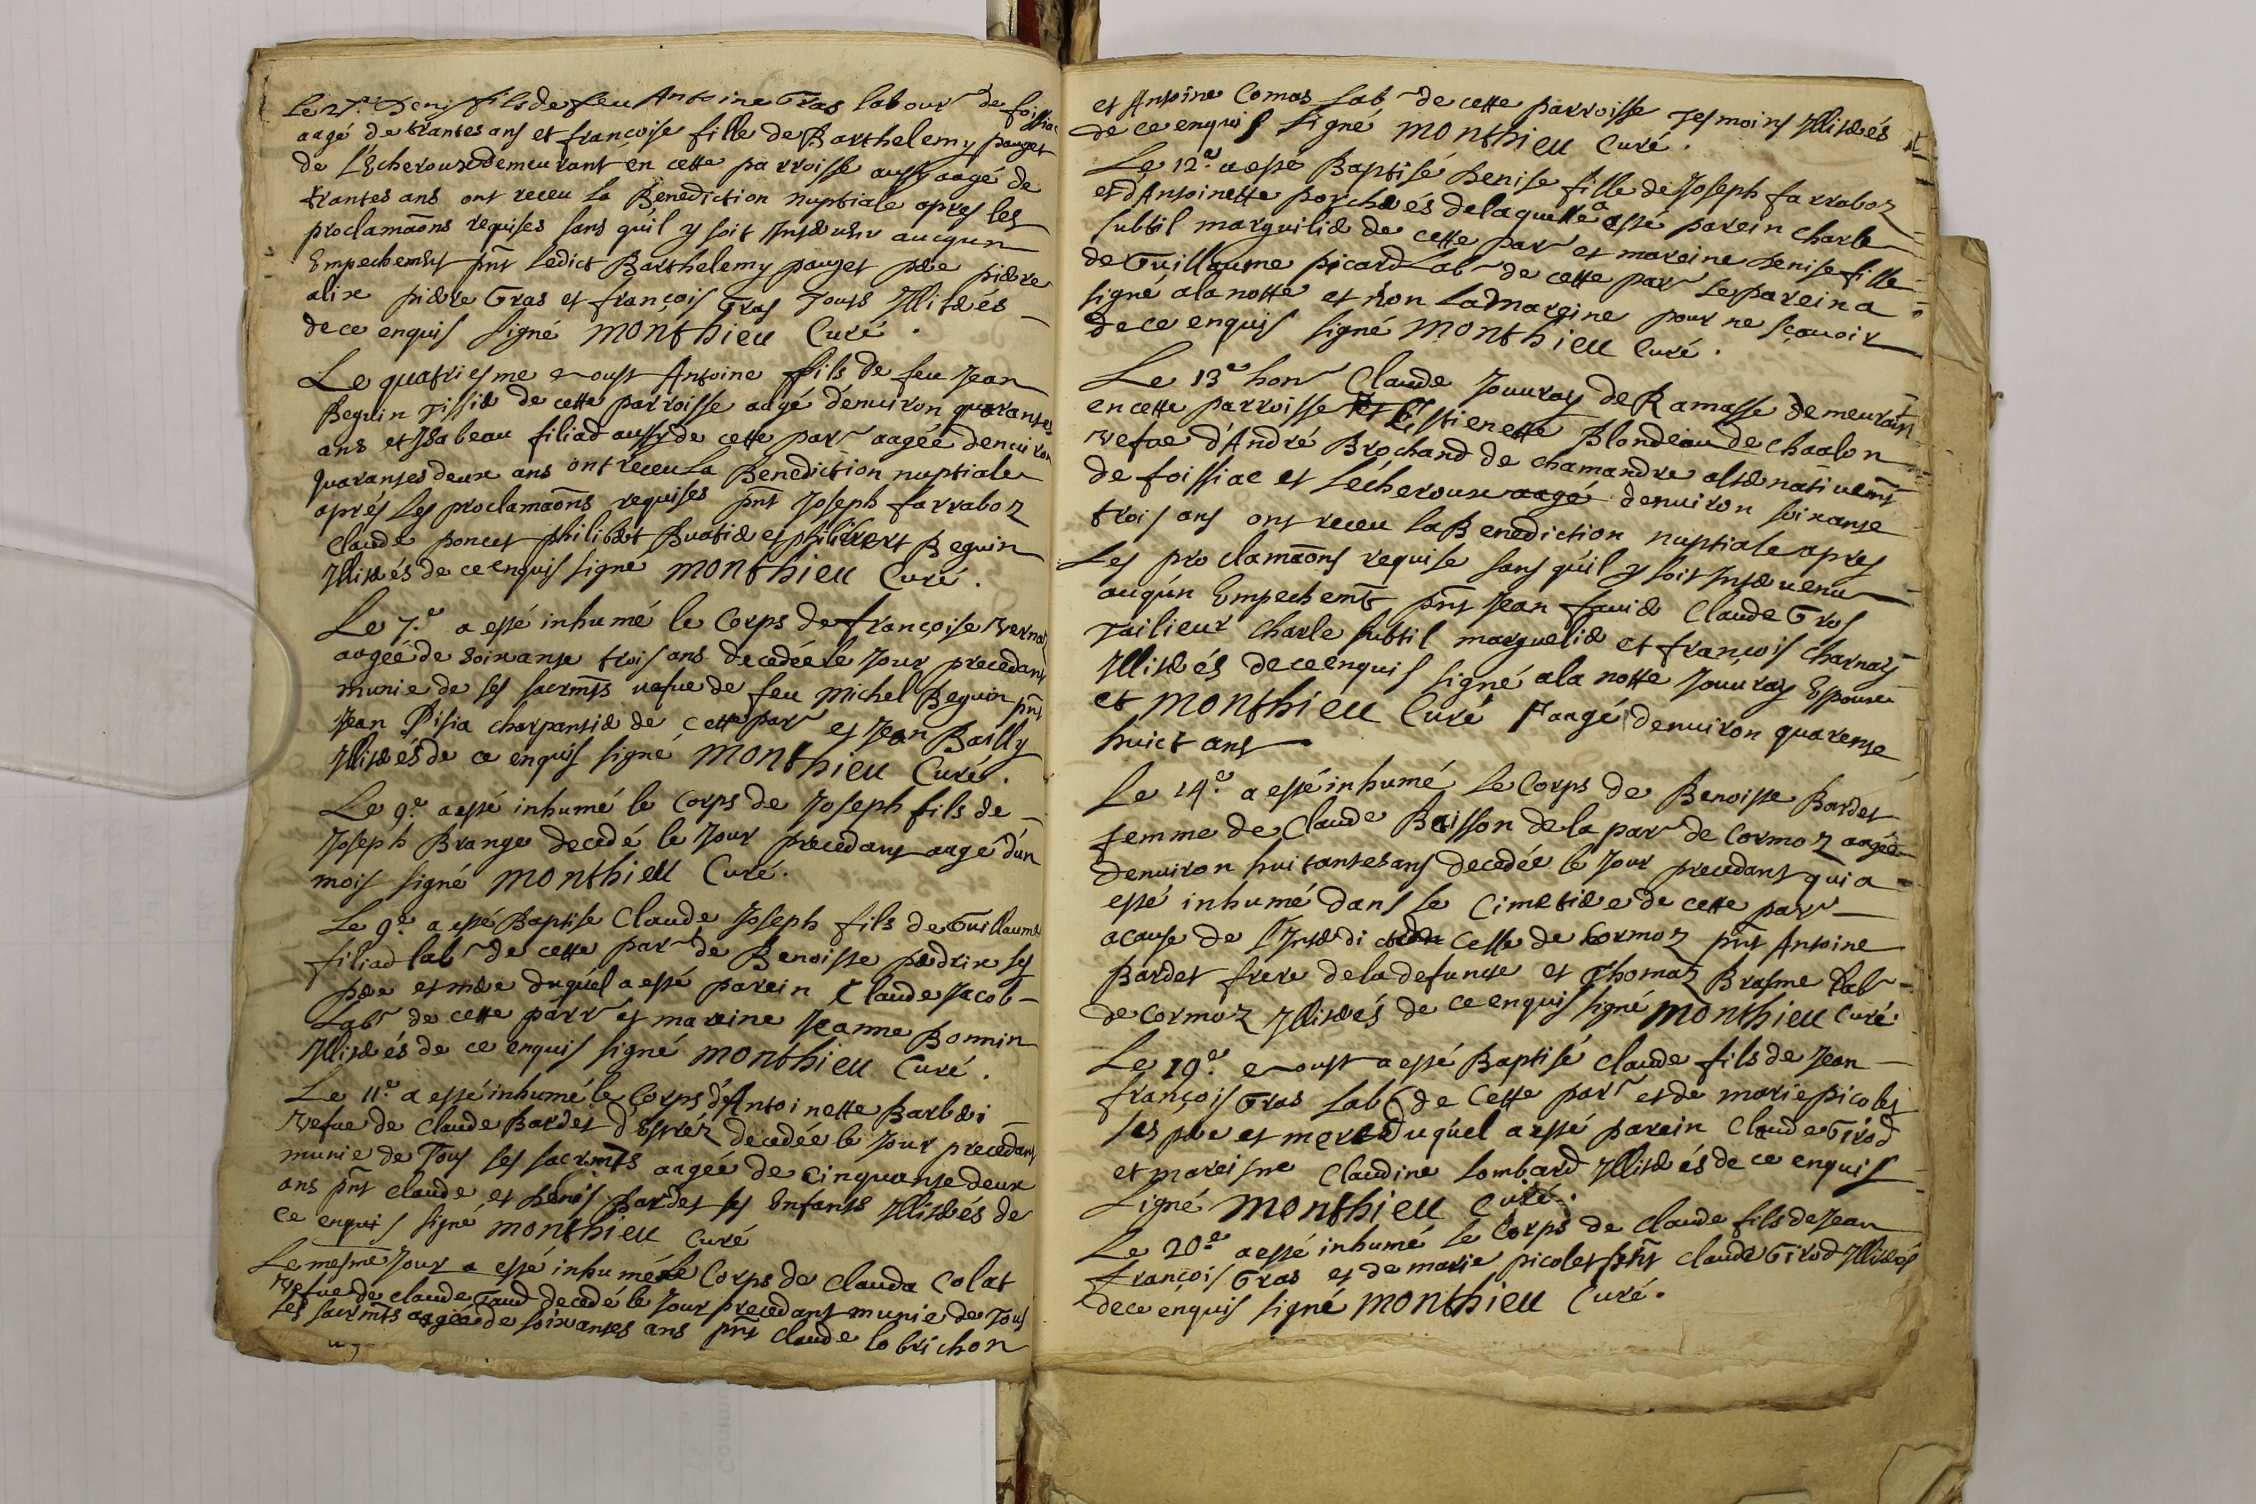 Le 27.e Denis fils de feu Antoine Gras labour.r de foissiac
aagé de trantes ans et françoise fille de Barthelemy pauget
de L'Echeroux demeurant en cette parroisse aussy aagé de
trantes ans ont receu la Benediction nuptiale apres les
proclamaōns requises sans qu'il y soit Intervenu aucqun
Empechement pñt ledict Barthelemy pauget pere pierre
alix pierre Gras et françois Gras Touts Illiterés
de ce enquis signé Monthieu Curé.
Le quatriesme Aoust Antoine fils de feu Jean
Beguin Tissier de cette parroisse aagé d'enuiron quarantes
ans et Isabeau filiad aussy de cette par.r aagée denuiron
quarantes deux ans ont receu la Benediction nuptiale
aprés Les proclamaōns requises pñt Joseph farraboz
Claude poncet philibert Buatier et philibert Beguin
Illiterés de ce enquis signé Monthieu Curé.
Le 7.e a esté inhumé le Corps de françoise Vernay
aagée de soixante trois ans decedée le Jour precedant
munie de ses sacrmts vefue de feu Michel Beguin pñt
Jean Pisia charpantier de cette par.r et Jean Bailly
Illiterés de ce enquis signé Monthieu Curé.
Le 9.e a esté inhumé le Corps de Joseph fils de
Joseph Brange decedé le Jour precedant aagé d'un
mois signé Monthieu Curé.
Le 9.e a esté Baptise Claude Joseph fils de Guillaume
filiad lab.r de cette par.r de Benoiste perdrix ses
pere et mere duquel a esté parein Claude Jacob
Lab.r de cette parr.r et mareine Jeanne Bonnin
Illiterés de ce enquis signé Monthieu Curé.
Le 11.e a esté inhumé le Corps d'Antoinette Barberi
vefue de Claude Bardet d'Estréz decedée le Jour precedant
munie de Tous ses sacrmts aagée de cinquante deux
ans pñt claude et Denis Bardet ses Enfants Illiterés de
ce enquis signé Monthieu Curé
Le mesme Jour a esté inhumé le Corps de Clauda Colat
vefue de claude Gaud decedé le Jour precedant munie de Tous
ses sacrmts aagée de soixantes ans pñt claude lobrichon
et Antoine Comas Lab.r de cette parroisse Tesmoins Illiterés
de ce enquis signé Monthieu Curé.
Le 12.e a esté Baptisé Denise fille de Joseph farraboz
et d'Antoinette porcherés de laquelle a esté parein Charle
subtil marguilier de cette par.r et mareine Denise fille
de Guillaume picard Lab.r de cette par.r Le parein a
signé a la notte et non La Mareine pour ne sçauoir
de ce enquis signé Monthieu Curé.
Le 13.e hon.r Claude Jouuray de Ramasse demeurant
en cette parroisse et Estienette Blondeau de Chaalon
vefue d'André Brochand de chamandre alternatiuemt
de foissiac et L'écheroux aagé denuiron soixante
trois ans ont receu la Benediction nuptiale apres
Les proclamaōns requise sans qu'il y soit Interuenu
auqun Empechemt pñt Jean fauier Claude Gros
Tailieur Charle subtil marguelier et françois charnay
Illiterés de ce enquis signé a la notte Jouuray Espoux
et Monthieu Curé aagé denuiron quarente
huict ans
Le 14.e a esté inhumé Le Corps de Benoiste Bardet
femme de Claude Boisson de la par.r de Cormoz aagée
denuiron huitantes ans decedée le Jour precedant qui a
esté inhumé dans le Cimetiere de cette par.r
a cause de l'Interdi de Celle de Cormoz pñt Antoine
Bardet frere de la defuncte et Thomas Brasme Lab.r
de Cormoz Illiterés de ce enquis signé Monthieu Curé.
Le 19.e Aoust a esté Baptisé claude fils de Jean
françois Gras Lab.r de Cette par.r et de marie picolet
ses pere et mere duquel a esté parein Claude Girod
et mareisne Claudine Lombard Illiterés de ce enquis
Signé Monthieu Curé.
Le 20.e a esté inhumé Le Corps de Claude fils de Jean
françois Gras et de marie picolet pñt Claude Girod Illiterés
de ce enquis signé Monthieu Curé.